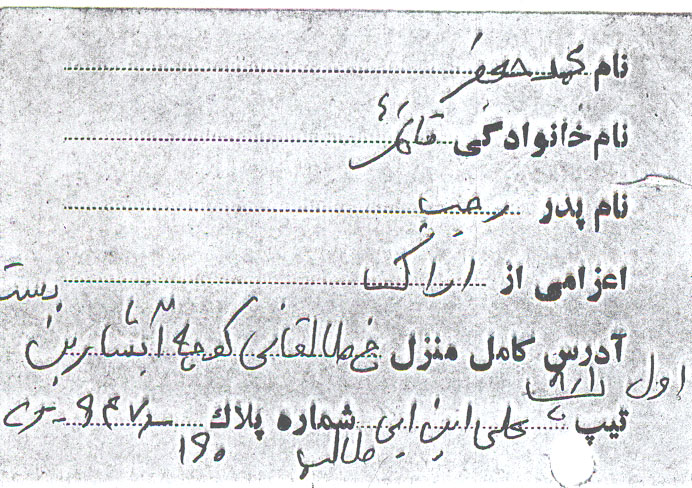 نام محمد جعفر
نام خانوادگی قائمی
نام پدر رجب
اعزامی از اراک
آدرس کامل منزل خ طالقانی کوچه آبشار بن بست
اول
تیپ علی ابن ابی طالب شماره پلاک